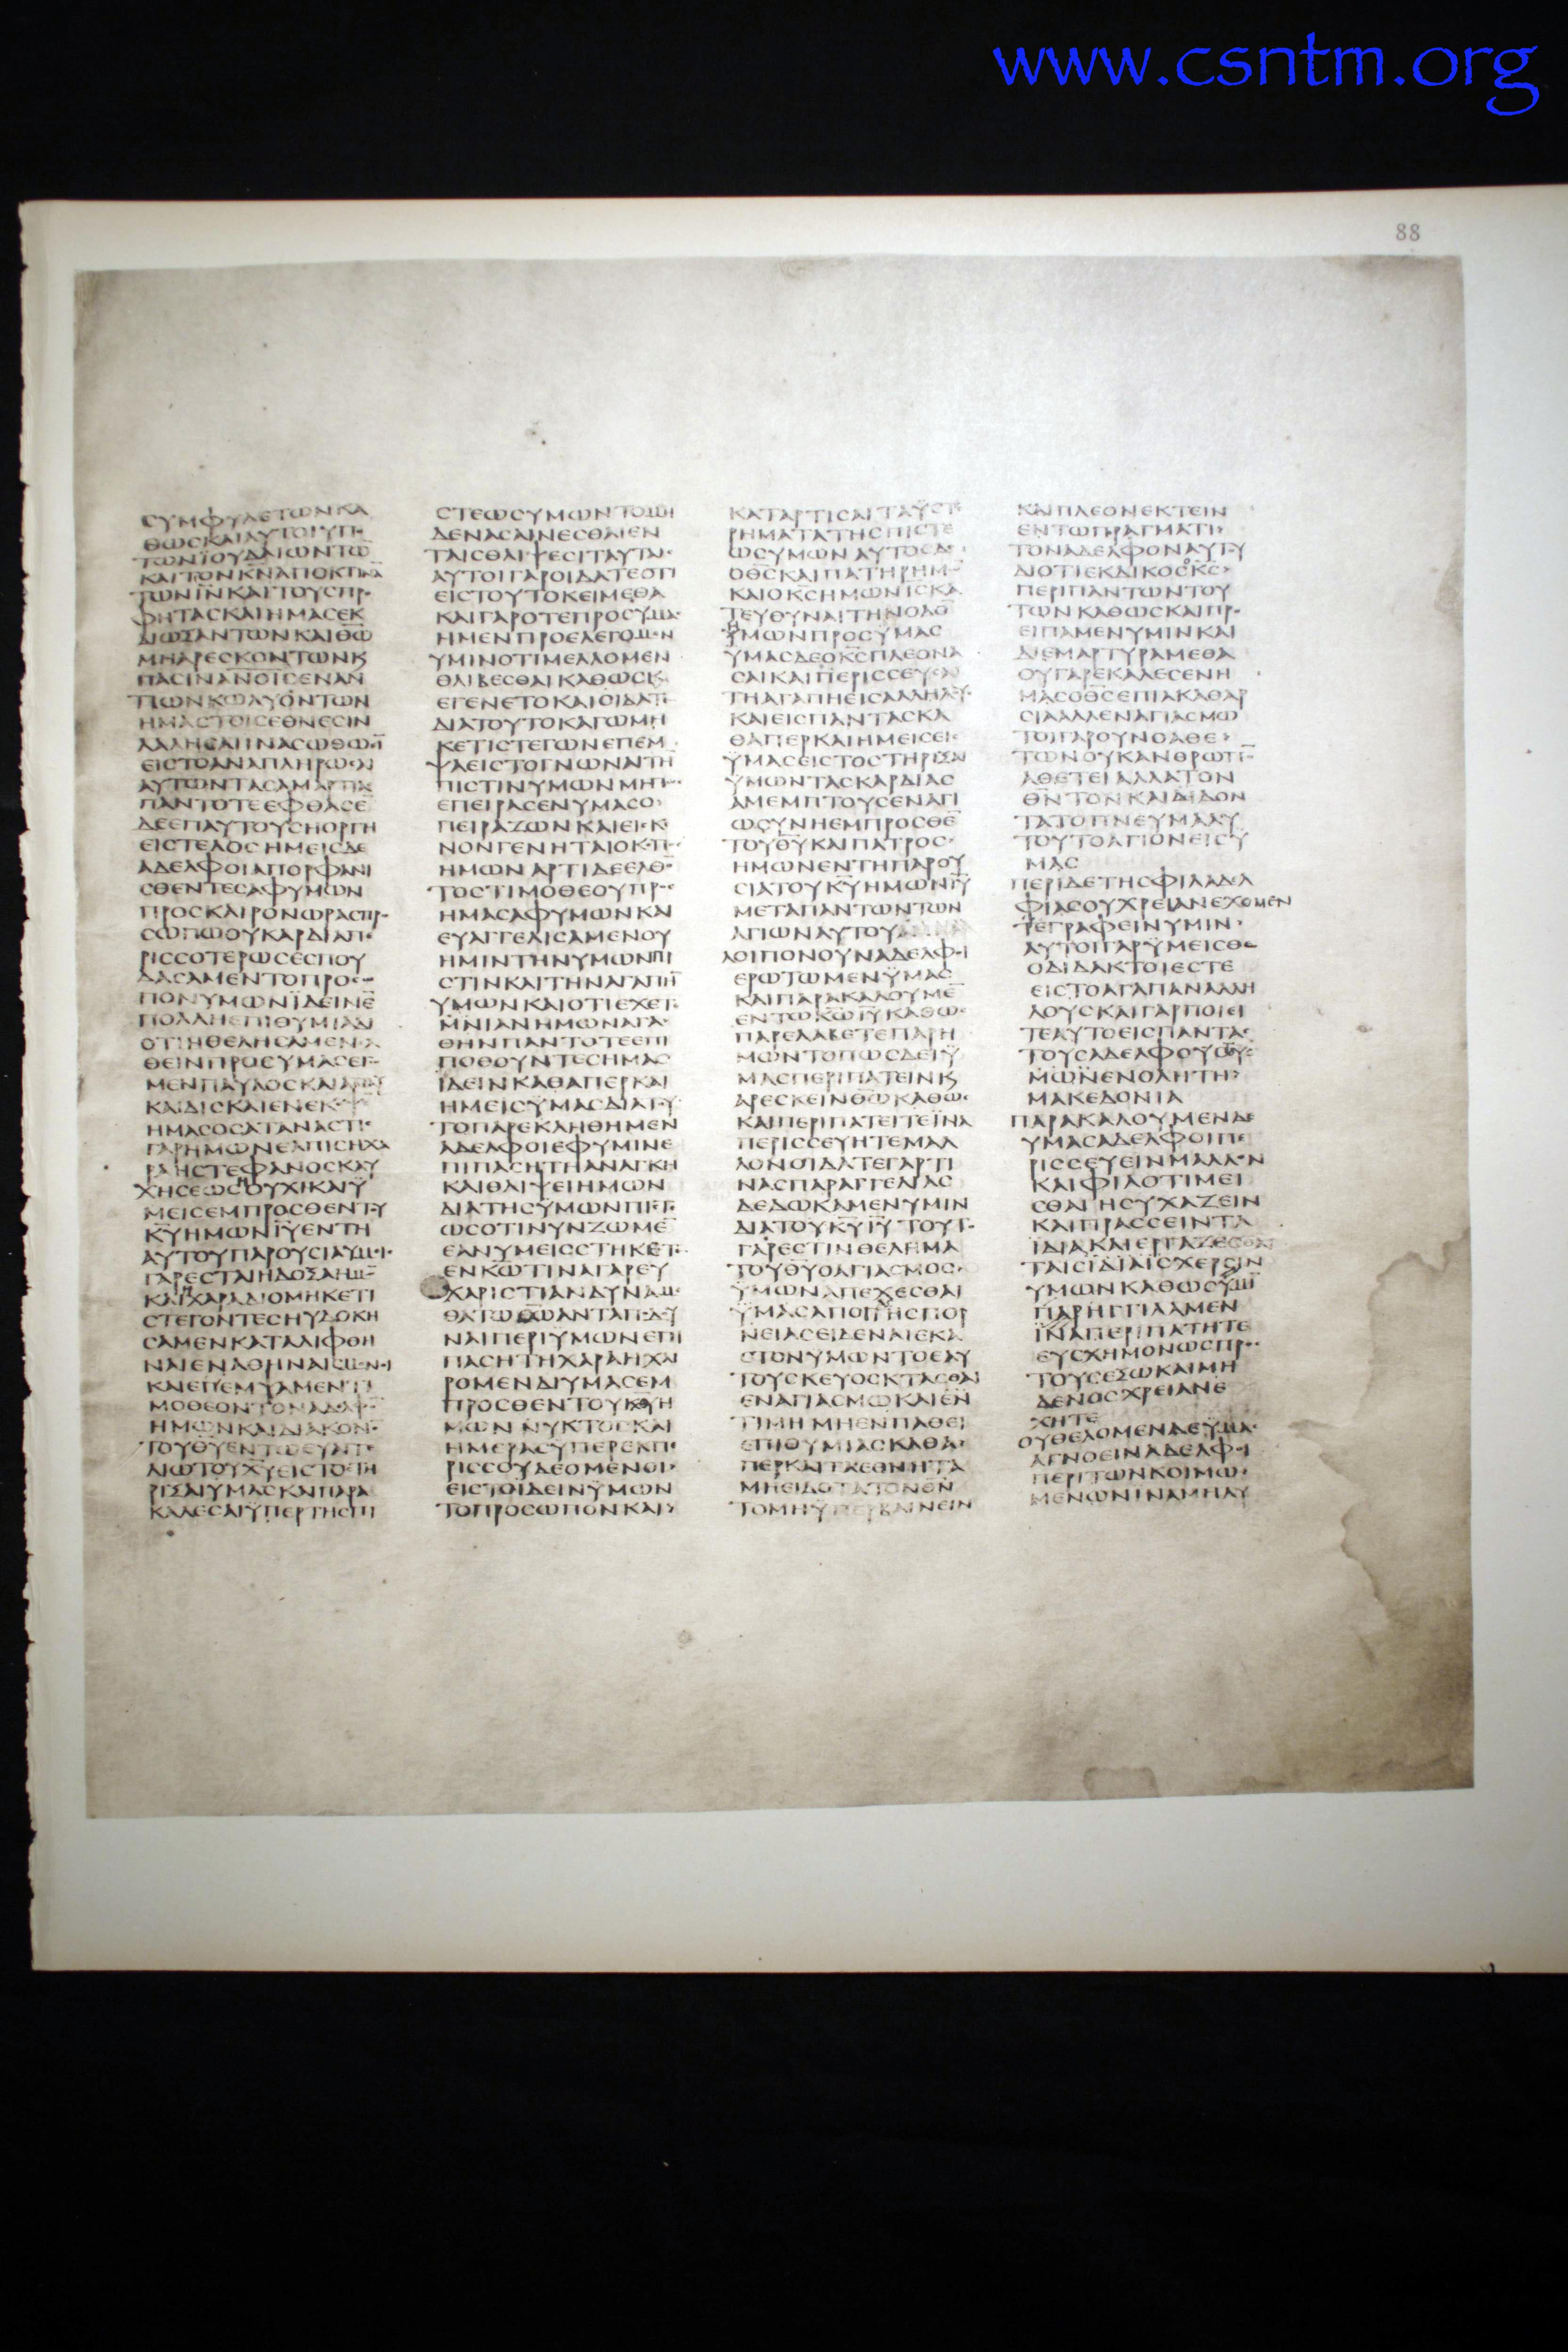 www.csntm.org
88
ϹΥΜΦΥΛΕΤΩΝΚΑ
ΘΩϹΚΑΙΑΥΤΟΙΥΠ
ΤΩΝΪΟΥΔΑΙΩΝΤΩ̅
ΚΑΙΤΟΝΚ̅Ν̅ΑΠΟΚΤΙΝΑ
ΤΩΝΙ̅Ν̅ΚΑΙΤΟΥϹΠΡ
ΦΗΤΑϹΚΑΙΗΜΑϹΕΚ
ΔΙΩΞΑΝΤΩΝΚΑΙΘ̅Ω̅
ΜΗΑΡΕϹΚΟΝΤΩΝϏ
ΠΑϹΙΝΑΝΟΙϹΕΝΑΝ
ΤΙΩΝΚΩΛΥΟΝΤΩΝ
ΗΜΑϹΤΟΙϹΕΘΝΕϹΙΝ
ΛΑΛΗϹΑΙΙΝΑϹΩΘΩϹΙ̅
ΕΙϹΤΟΑΝΑΠΛΗΡΩϹΑΙ
ΑΥΤΩΝΤΑϹΑΜΑΡΤΙΑϹ
ΠΑΝΤΟΤΕΕΦΘΑϹΕ̅
ΔΕΕΠΑΥΤΟΥϹΗΟΡΓΗ
ΕΙϹΤΕΛΟϹΗΜΕΙϹΔΕ
ΑΔΕΛΦΟΙΑΠΟΡΦΑΝΙ
ϹΘΕΝΤΕϹΑΦΥΜΩΝ
ΠΡΟϹΚΑΙΡΟΝΩΡΑϹΠΡ
ϹΩΠΩΟΥΚΑΡΔΙΑΠ
ΡΙϹϹΟΤΕΡΩϹΕϹΠΟΥ
ΔΑϹΑΜΕΝΤΟΠΡΟϹ
ΠΟΝΥΜΩΝΪΔΕΙΝΕ̅
ΠΟΛΛΗΕΠΙΘΥΜΙΑΔΙ
ΟΤΙΗΘΕΛΗϹΑΜΕΝΕΛ
ΘΕΙΝΠΡΟϹΥΜΑϹΕΓ
ΜΕΝΠΑΥΛΟϹΚΑΙΑΠΑΞ
ΚΑΙΔΙϹΚΑΙΕΝΕΚΟΨΕ̅
ΗΜΑϹΟϹΑΤΑΝΑϹΤΙ
ΓΑΡΗΜΩΝΕΛΠΙϹΗΧΑ
ΡΑΗϹΤΕΦΑΝΟϹΚΑΥ
ΧΗϹΕΩϹΗΟΥΧΙΚΑΙΫ
ΜΕΙϹΕΜΠΡΟϹΘΕΝΤΟΥ
Κ̅Υ̅ΗΜΩΝΙ̅Υ̅ΕΝΤΗ
ΑΥΤΟΥΠΑΡΟΥϹΙΑΥΜΙϹ
ΓΑΡΕϹΤΑΙΗΔΟΞΑΗΜΩ̅
ΚΑΙΗΧΑΡΑΔΙΟΜΗΚΕΤΙ
ϹΤΕΓΟΝΤΕϹΗΥΔΟΚΗ
ϹΑΜΕΝΚΑΤΑΛΙΦΘΗ
ΝΑΙΕΝΑΘΗΝΑΙϹΜΟΝΟΙ
ΚΑΙΕΠΕΜΨΑΜΕΝΤΙ
ΜΟΘΕΟΝΤΟΝΑΔΕΛΦΟ̅
ΗΜΩΝΚΑΙΔΙΑΚΟΝΟ̅
ΤΟΥΘ̅Υ̅ΕΝΤΩΕΥΑΓΓΕ
ΛΙΩΤΟΥΧ̅Υ̅ΕΙϹΤΟϹΤΗ
ΡΙΞΑΙΥΜΑϹΚΑΙΠΑΡΑ
ΚΑΛΕϹΑΙΫΠΕΡΤΗϹΠΙ
ϹΤΕΩϹΥΜΩΝΤΟΜΗ
ΔΕΝΑϹΑΙΝΕϹΘΑΙΕΝ
ΤΑΙϹΘΛΙΨΕϹΙΤΑΥΤΑΙϹ
ΑΥΤΟΙΓΑΡΟΙΔΑΤΕΟΤΙ
ΕΙϹΤΟΥΤΟΚΕΙΜΕΘΑ
ΚΑΙΓΑΡΟΤΕΠΡΟϹΥΜΑϹ
ΗΜΕΝΠΡΟΕΛΕΓΟΜΕΝ
ΥΜΙΝΟΤΙΜΕΛΛΟΜΕΝ
ΘΛΙΒΕϹΘΑΙΚΑΘΩϹϏ
ΕΓΕΝΕΤΟΚΑΙΟΙΔΑΤΕ
ΔΙΑΤΟΥΤΟΚΑΓΩΜΗ
ΚΕΤΙϹΤΕΓΩΝΕΠΕΜ
ΨΑΕΙϹΤΟΓΝΩΝΑΙΤΗ̅
ΠΙϹΤΙΝΥΜΩΝΜΗΠ
ΕΠΕΙΡΑϹΕΝΥΜΑϹΟ
ΠΕΙΡΑΖΩΝΚΑΙΕΙϹΚΕ
ΝΟΝΓΕΝΗΤΑΙΟΚΟΠΟϹ
ΗΜΩΝΑΡΤΙΔΕΕΛΘΟ̅
ΤΟϹΤΙΜΟΘΕΟΥΠΡΟϹ
ΗΜΑϹΑΦΥΜΩΝΚΑΙ
ΕΥΑΓΓΕΛΙϹΑΜΕΝΟΥ
ΗΜΙΝΤΗΝΥΜΩΝΠΙ
ϹΤΙΝΚΑΙΤΗΝΑΓΑΠΗ̅
ΥΜΩΝΚΑΙΟΤΙΕΧΕΤΕ
ΜΝΙΑΝΗΜΩΝΑΓΑ
ΘΗΝΠΑΝΤΟΤΕΕΠΙ
ΠΟΘΟΥΝΤΕϹΗΜΑϹ
ΪΔΕΙΝΚΑΘΑΠΕΡΚΑΙ
ΗΜΕΙϹΥΜΑϹΔΙΑΤΟΥ
ΤΟΠΑΡΕΚΛΗΘΗΜΕΝ
ΑΔΕΛΦΟΙΕΦΥΜΙΝΕ
ΠΙΠΑϹΗΤΗΑΝΑΓΚΗ
ΚΑΙΘΛΙΨΕΙΗΜΩΝ
ΔΙΑΤΗϹΥΜΩΝΠΙϹΤ
ΩϹΟΤΙΝΥΝΖΩΜΕ̅
ΕΑΝΥΜΕΙϹϹΤΗΚΕΤΕ
ΕΝΚ̅Ω̅ΤΙΝΑΓΑΡΕΥ
ΧΑΡΙϹΤΙΑΝΔΥΝΑΜΕ
ΘΑΤΩΘ̅Ω̅ΑΝΤΑΠΟΔΟΥ
ΝΑΙΠΕΡΙΥΜΩΝΕΠΙ
ΠΑϹΗΤΗΧΑΡΑΗΧΑΙ
ΡΟΜΕΝΔΙΥΜΑϹΕΜ
ΠΡΟϹΘΕΝΤΟΥΚ̅Υ̅Η
ΜΩΝΝΥΚΤΟϹΚΑΙ
ΗΜΕΡΑϹΥΠΕΡΕΚΠΕ
ΡΙϹϹΟΥΔΕΟΜΕΝΟΙ
ΕΙϹΤΟΪΔΕΙΝΫΜΩΝ
ΤΟΠΡΟϹΩΠΟΝΚΑΙ
ΚΑΤΑΡΤΙϹΑΙΤΑΫϹΤΕ
ΡΗΜΑΤΑΤΗϹΠΙϹΤΕ
ΩϹΥΜΩΝΑΥΤΟϹΔΕ
ΟΘ̅Ϲ̅ΚΑΙΠΑΤΗΡΗΜΩ̅
ΚΑΙΟΚ̅Ϲ̅ΗΜΩΝΙ̅Ϲ̅ΚΑ
ΤΕΥΘΥΝΑΙΤΗΝΟΔΟ̅
ΗΜΩΝΠΡΟϹΫΜΑϹ
ΥΜΑϹΔΕΟΚ̅Ϲ̅ΠΛΕΟΝΑ
ϹΑΙΚΑΙΠΕΡΙϹϹΕΥϹΑΙ
ΤΗΑΓΑΠΗΕΙϹΑΛΛΗΛΟΥϹ
ΚΑΙΕΙϹΠΑΝΤΑϹΚΑ
ΘΑΠΕΡΚΑΙΗΜΕΙϹΕΙϹ
ΫΜΑϹΕΙϹΤΟϹΤΗΡΙΞΑΙ
ΫΜΩΝΤΑϹΚΑΡΔΙΑϹ
ΑΜΕΜΠΤΟΥϹΕΝΑΓΙ
ΩϹΥΝΗΕΜΠΡΟϹΘΕ̅
ΤΟΥΘ̅Υ̅ΚΑΙΠΑΤΡΟϹ
ΗΜΩΝΕΝΤΗΠΑΡΟΥ
ϹΙΑΤΟΥΚ̅Υ̅ΗΜΩΝΙ̅Υ̅
ΜΕΤΑΠΑΝΤΩΝΤΩΝ
ΑΓΙΩΝΑΥΤΟΥ
ΛΟΙΠΟΝΟΥΝΑΔΕΛΦΟΙ
ΕΡΩΤΩΜΕΝΫΜΑϹ
ΚΑΙΠΑΡΑΚΑΛΟΥΜΕ̅
ΕΝΤΩΚ̅Ω̅Ι̅Υ̅ΚΑΘΩϹ
ΠΑΡΕΛΑΒΕΤΕΠΑΡΗ
ΜΩΝΤΟΠΩϹΔΕΙΫ
ΜΑϹΠΕΡΙΠΑΤΕΙΝϏ
ΑΡΕϹΚΕΙΝΘ̅Ω̅ΚΑΘΩϹ
ΚΑΙΠΕΡΙΠΑΤΕΙΤΕΪΝΑ
ΠΕΡΙϹϹΕΥΗΤΕΜΑΛ
ΛΟΝΟΙΔΑΤΕΓΑΡΤΙ
ΝΑϹΠΑΡΑΓΓΕΛΙΑϹ
ΔΕΔΩΚΑΜΕΝΥΜΙΝ
ΔΙΑΤΟΥΚ̅Υ̅Ι̅Υ̅ΤΟΥΤΟ
ΓΑΡΕϹΤΙΝΘΕΛΗΜΑ
ΤΟΥΘ̅Υ̅ΟΑΓΙΑϹΜΟϹ
ΫΜΩΝΑΠΕΧΕϹΘΑΙ
ΫΜΑϹΑΠΟΠΑϹΗϹΠΟΡ
ΝΕΙΑϹΕΙΔΕΝΑΙΕΚΑ
ϹΤΟΝΥΜΩΝΤΟΕΑΥ
ΤΟΥϹΚΕΥΟϹΚΤΑϹΘΑΙ
ΕΝΑΓΙΑϹΜΩΚΑΙΕΝ
ΤΙΜΗΜΗΕΝΠΑΘΕΙ
ΕΠΙΘΥΜΙΑϹΚΑΘΑ
ΠΕΡΚΑΙΤΑΕΘΝΗΤΑ
ΜΗΕΙΔΟΤΑΤΟΝΘ̅Ν̅
ΤΟΜΗΫΠΕΡΒΑΙΝΕΙΝ
ΚΑΙΠΛΕΟΝΕΚΤΕΙΝ
ΕΝΤΩΠΡΑΓΜΑΤΙ
ΤΟΝΑΔΕΛΦΟΝΑΥΤΟΥ
ΔΙΟΤΙΕΚΔΙΚΟϹΟΚ̅Ϲ̅
ΠΕΡΙΠΑΝΤΩΝΤΟΥ
ΤΩΝΚΑΘΩϹΚΑΙΠΡΟ
ΕΙΠΑΜΕΝΥΜΙΝΚΑΙ
ΔΙΕΜΑΡΤΥΡΑΜΕΘΑ
ΟΥΓΑΡΕΚΑΛΕϹΕΝΗ
ΜΑϹΟΘ̅Ϲ̅ΕΠΙΑΚΑΘΑΡ
ϹΙΑΑΛΛΕΝΑΓΙΑϹΜΩ
ΤΟΙΓΑΡΟΥΝΟΑΘΕ
ΤΩΝΟΥΚΑΝΘΡΩΠΟ̅
ΑΘΕΤΕΙΑΛΛΑΤΟΝ
Θ̅Ν̅ΤΟΝΚΑΙΔΙΔΟΝ
ΤΑΤΟΠΝΕΥΜΑΑΥ
ΤΟΥΤΟΑΓΙΟΝΕΙϹΥ
ΜΑϹ
ΠΕΡΙΔΕΤΗϹΦΙΛΑΔΕΛ
ΦΙΑϹΟΥΧΡΕΙΑΝΕΧΟΜΕΝ
ΓΡΑΦΕΙΝΥΜΙΝ
ΑΥΤΟΙΓΑΡΫΜΕΙϹΘΕ
ΟΔΙΔΑΚΤΟΙΕϹΤΕ
ΕΙϹΤΟΑΓΑΠΑΝΑΛΛΗ
ΛΟΥϹΚΑΙΓΑΡΠΟΙΕΙ
ΤΕΑΥΤΟΕΙϹΠΑΝΤΑϹ
ΤΟΥϹΑΔΕΛΦΟΥϹΥ
ΜΩΝΕΝΟΛΗΤΗ
ΜΑΚΕΔΟΝΙΑ
ΠΑΡΑΚΑΛΟΥΜΕΝΔΕ
ΥΜΑϹΑΔΕΛΦΟΙΠΕ
ΡΙϹϹΕΥΕΙΝΜΑΛΛΟΝ
ΚΑΙΦΙΛΟΤΙΜΕΙ
ϹΘΑΙΗϹΥΧΑΖΕΙΝ
ΚΑΙΠΡΑϹϹΕΙΝΤΑ
ΪΔΙΑΚΑΙΕΡΓΑΖΕϹΘΑΙ
ΤΑΙϹΪΔΙΑΙϹΧΕΡϹΙΝ
ΥΜΩΝΚΑΘΩϹΥΜΙ̅
ΠΑΡΗΓΓΙΛΑΜΕΝ
ΪΝΑΠΕΡΙΠΑΤΗΤΕ
ΕΥϹΧΗΜΟΝΩϹΠΡΟϹ
ΤΟΥϹΕΞΩΚΑΙΜΗ
ΔΕΝΟϹΧΡΕΙΑΝΕ
ΧΗΤΕ
ΟΥΘΕΛΟΜΕΝΔΕΥΜΑϹ
ΑΓΝΟΕΙΝΑΔΕΛΦΟΙ
ΠΕΡΙΤΩΝΚΟΙΜΩ
ΜΕΝΩΝΙΝΑΜΗΛΥ